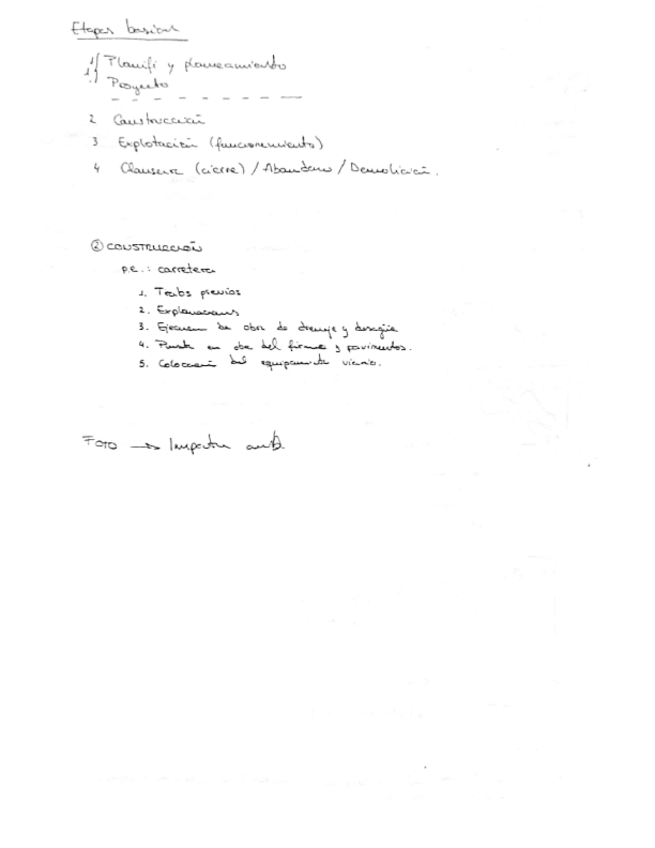 Etapas basicas
1/ Planifi y planeamiento
1/ Proyecto
2 Construcción
3 Explotación (funcionamiento)
4 Clausura (cierre) / Abandono / Demolición.
② CONSTRUCCIÓN
p.e.: carretera
1. Trabs previos
2. Explanacions
3. Ejecucn de obra de drenaje y desagüe
4. Puesta en obra del firme y pavimentos.
5. Colocación del equipamento viario.
FOTO → Impacto amb.